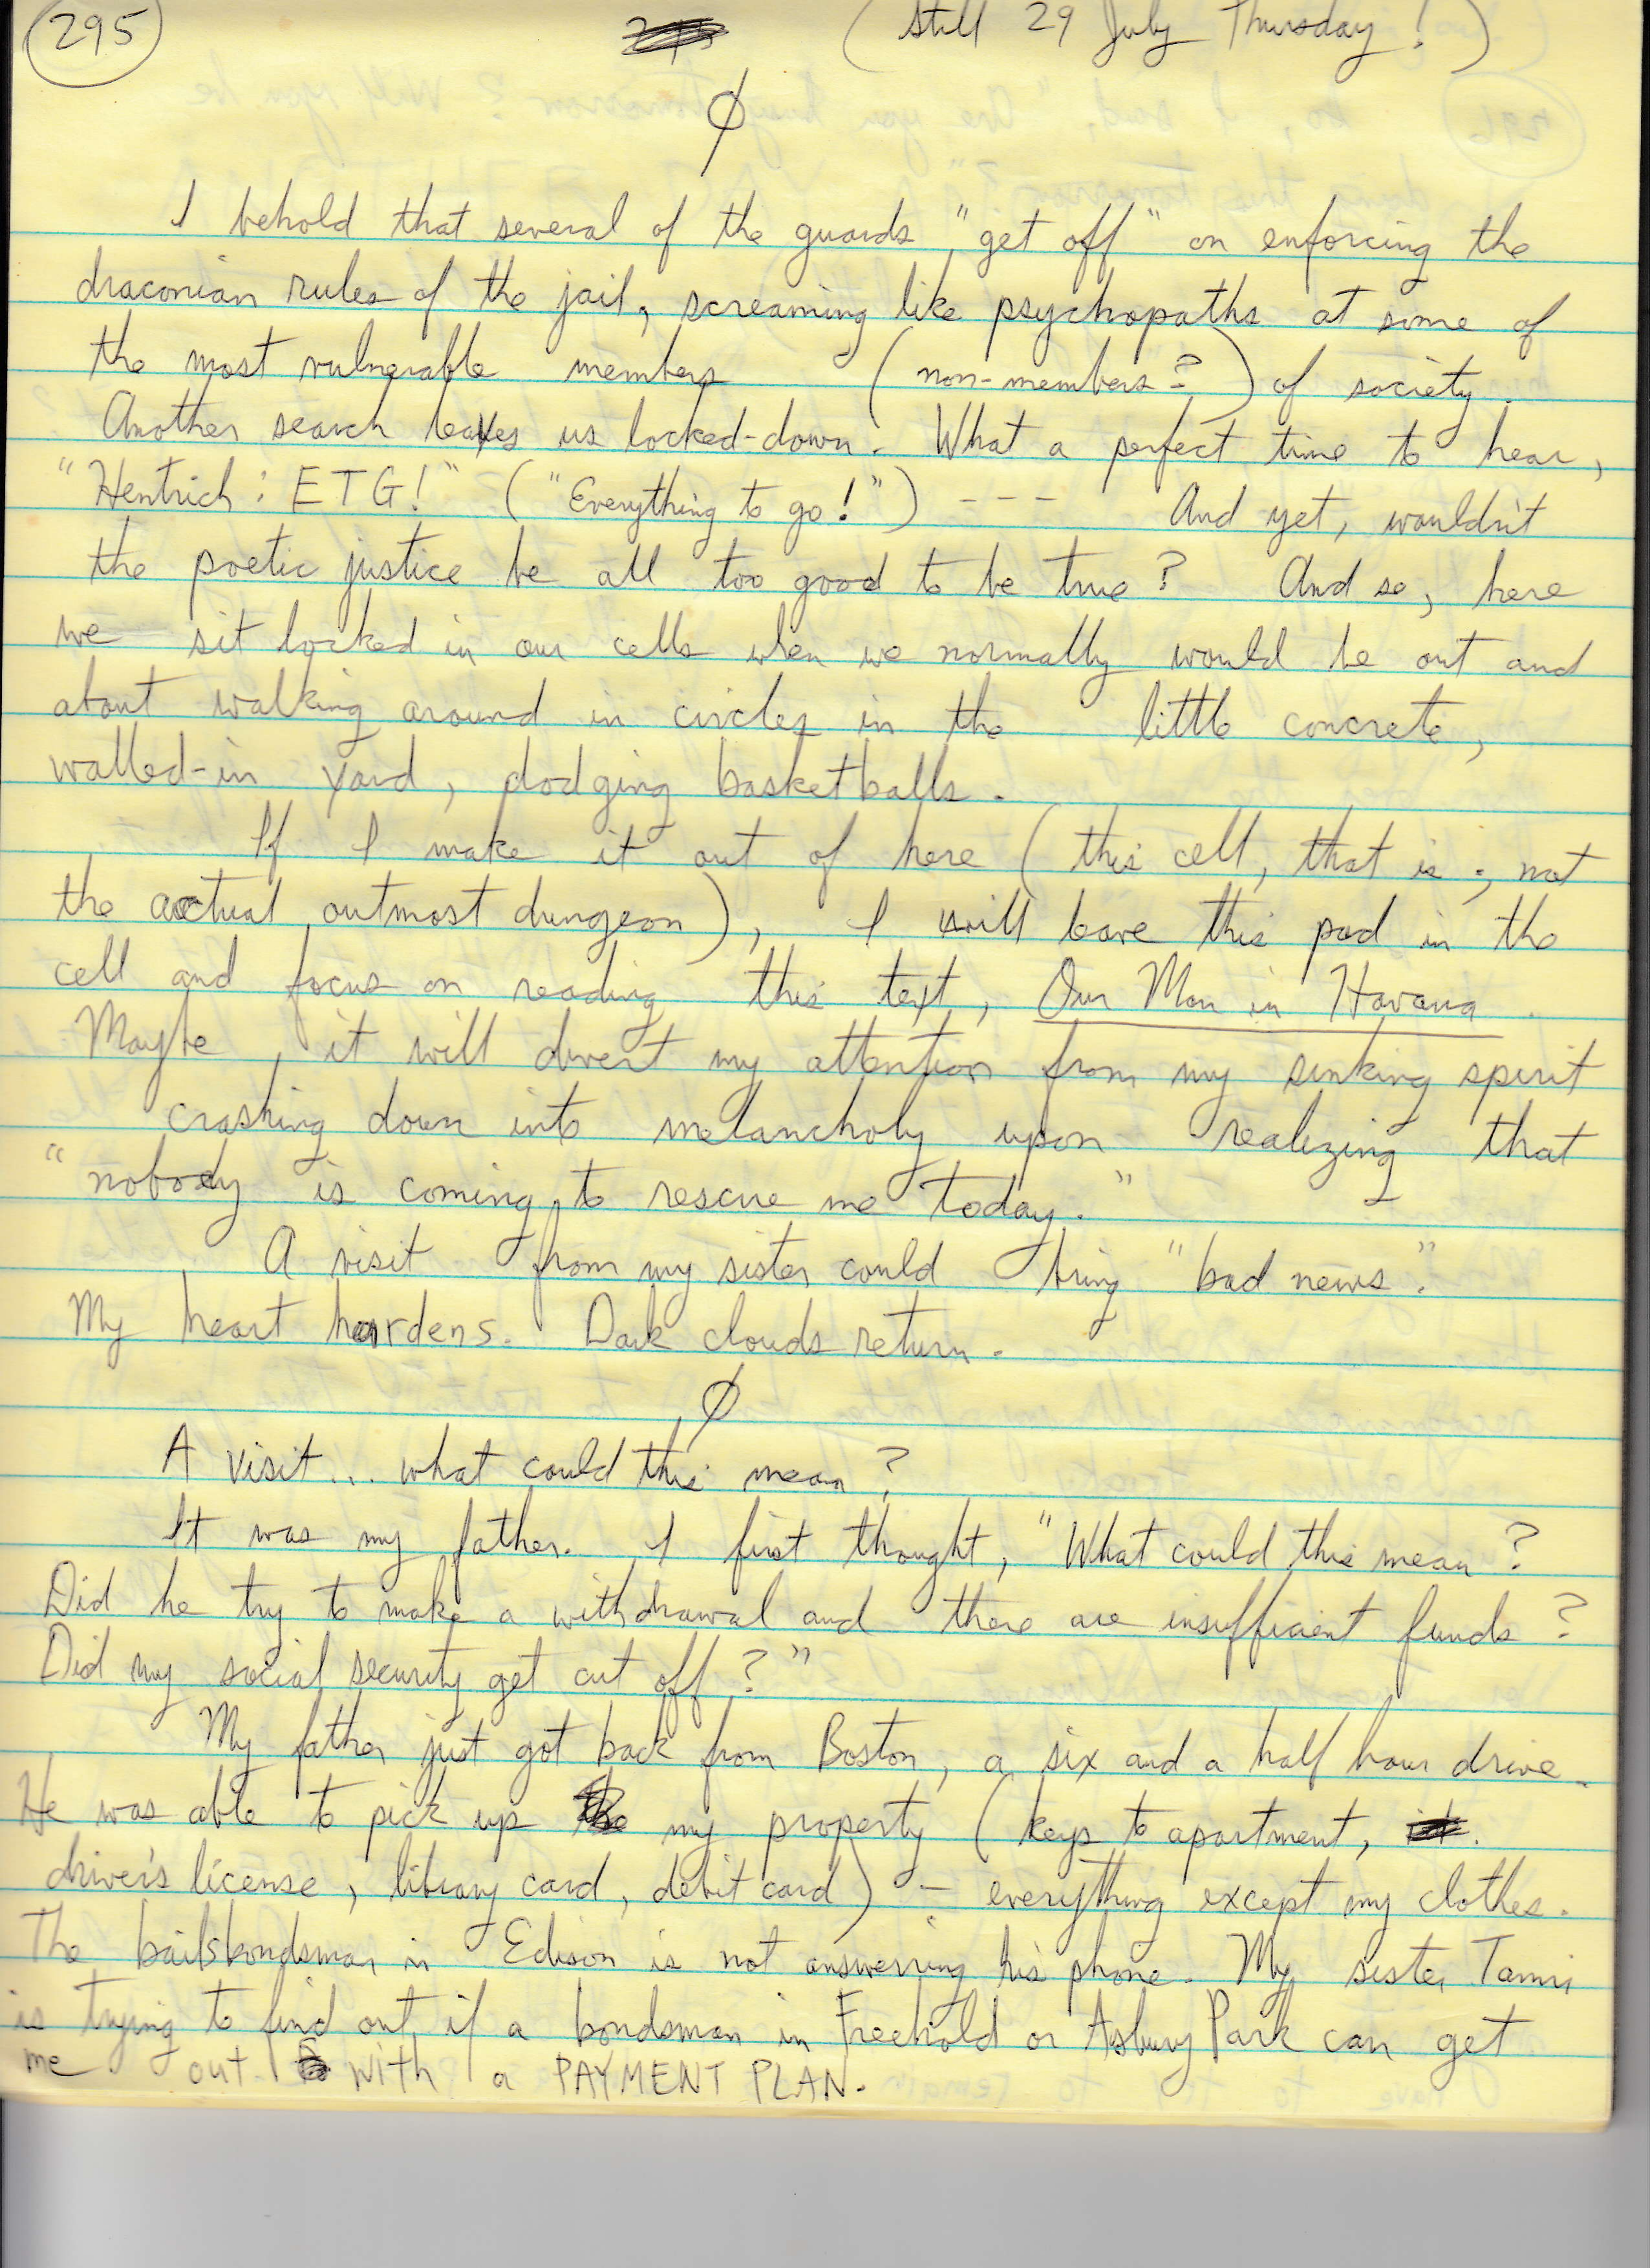 295 (still 29 July Thursday!)
Ø
I behold that several of the guards "get off" on enforcing the
draconian rules of the jail, screaming like psychopaths at some of
the most vulnerable members (non-members?) of society.
Another search leaves us locked-down. What a perfect time to hear,
"Hentrich: ETG!" ("Everything to go!") --- And yet, wouldn't
the poetic justice be all too good to be true? And so, here
we sit locked in our cells when we normally would be out and
about walking around in circles in the little concrete,
walled-in yard, dodging basketballs.
If I make it out of here (this cell, that is; not
the actual outmost dungeon), I will leave this pad in the
cell and focus on reading this text, Our Man in Havana.
Maybe, it will divert my attention from my sinking spirit
crashing down into melancholy upon realizing that
"nobody is coming to rescue me today."
A visit from my sister could bring "bad news".
My heart hardens. Dark clouds return.
Ø
A visit... what could this mean?
It was my father. I first thought, "What could this mean?
Did he try to make a withdrawal and there are insufficient funds?
Did my social security get cut off?"
My father just got back from Boston, a six and a half hour drive.
He was able to pick up my property (keys to apartment,
driver's license, library card, debit card) — everything except my clothes.
The bailsbondsman in Edison is not answering his phone. My sister Tammi
is trying to find out if a bondsman in Freehold or Asbury Park can get
me out with a PAYMENT PLAN.